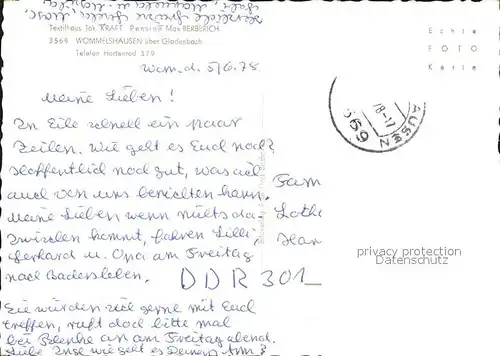 Herzliche Grüße
Textilhaus Joh. KRAFT Pension Max BERBERICH
3569 WOMMELSHAUSEN über Gladenbach
Telefon Hartenrod 379
Echte
FOTO
Karte
Wom. d. 5/6.78
Meine Lieben!
In Eile schnell ein paar
Zeilen. Wie geht es Euch noch?
Hoffentlich noch gut, was ich
auch von uns berichten kann.
Meine Lieben wenn nichts da-
zwischen kommt, fahren Lilli
Gerhard u. Opa am Freitag
nach Badersleben.
Sie würden sich gerne mit Euch
treffen, ruft doch bitte mal
bei an am Freitag abend.
Liebe Inge wie geht es Deinem Arm?
Fam
Lotha
Har
DDR 301
18-17
AUSEN
569
privacy protection
Datenschutz